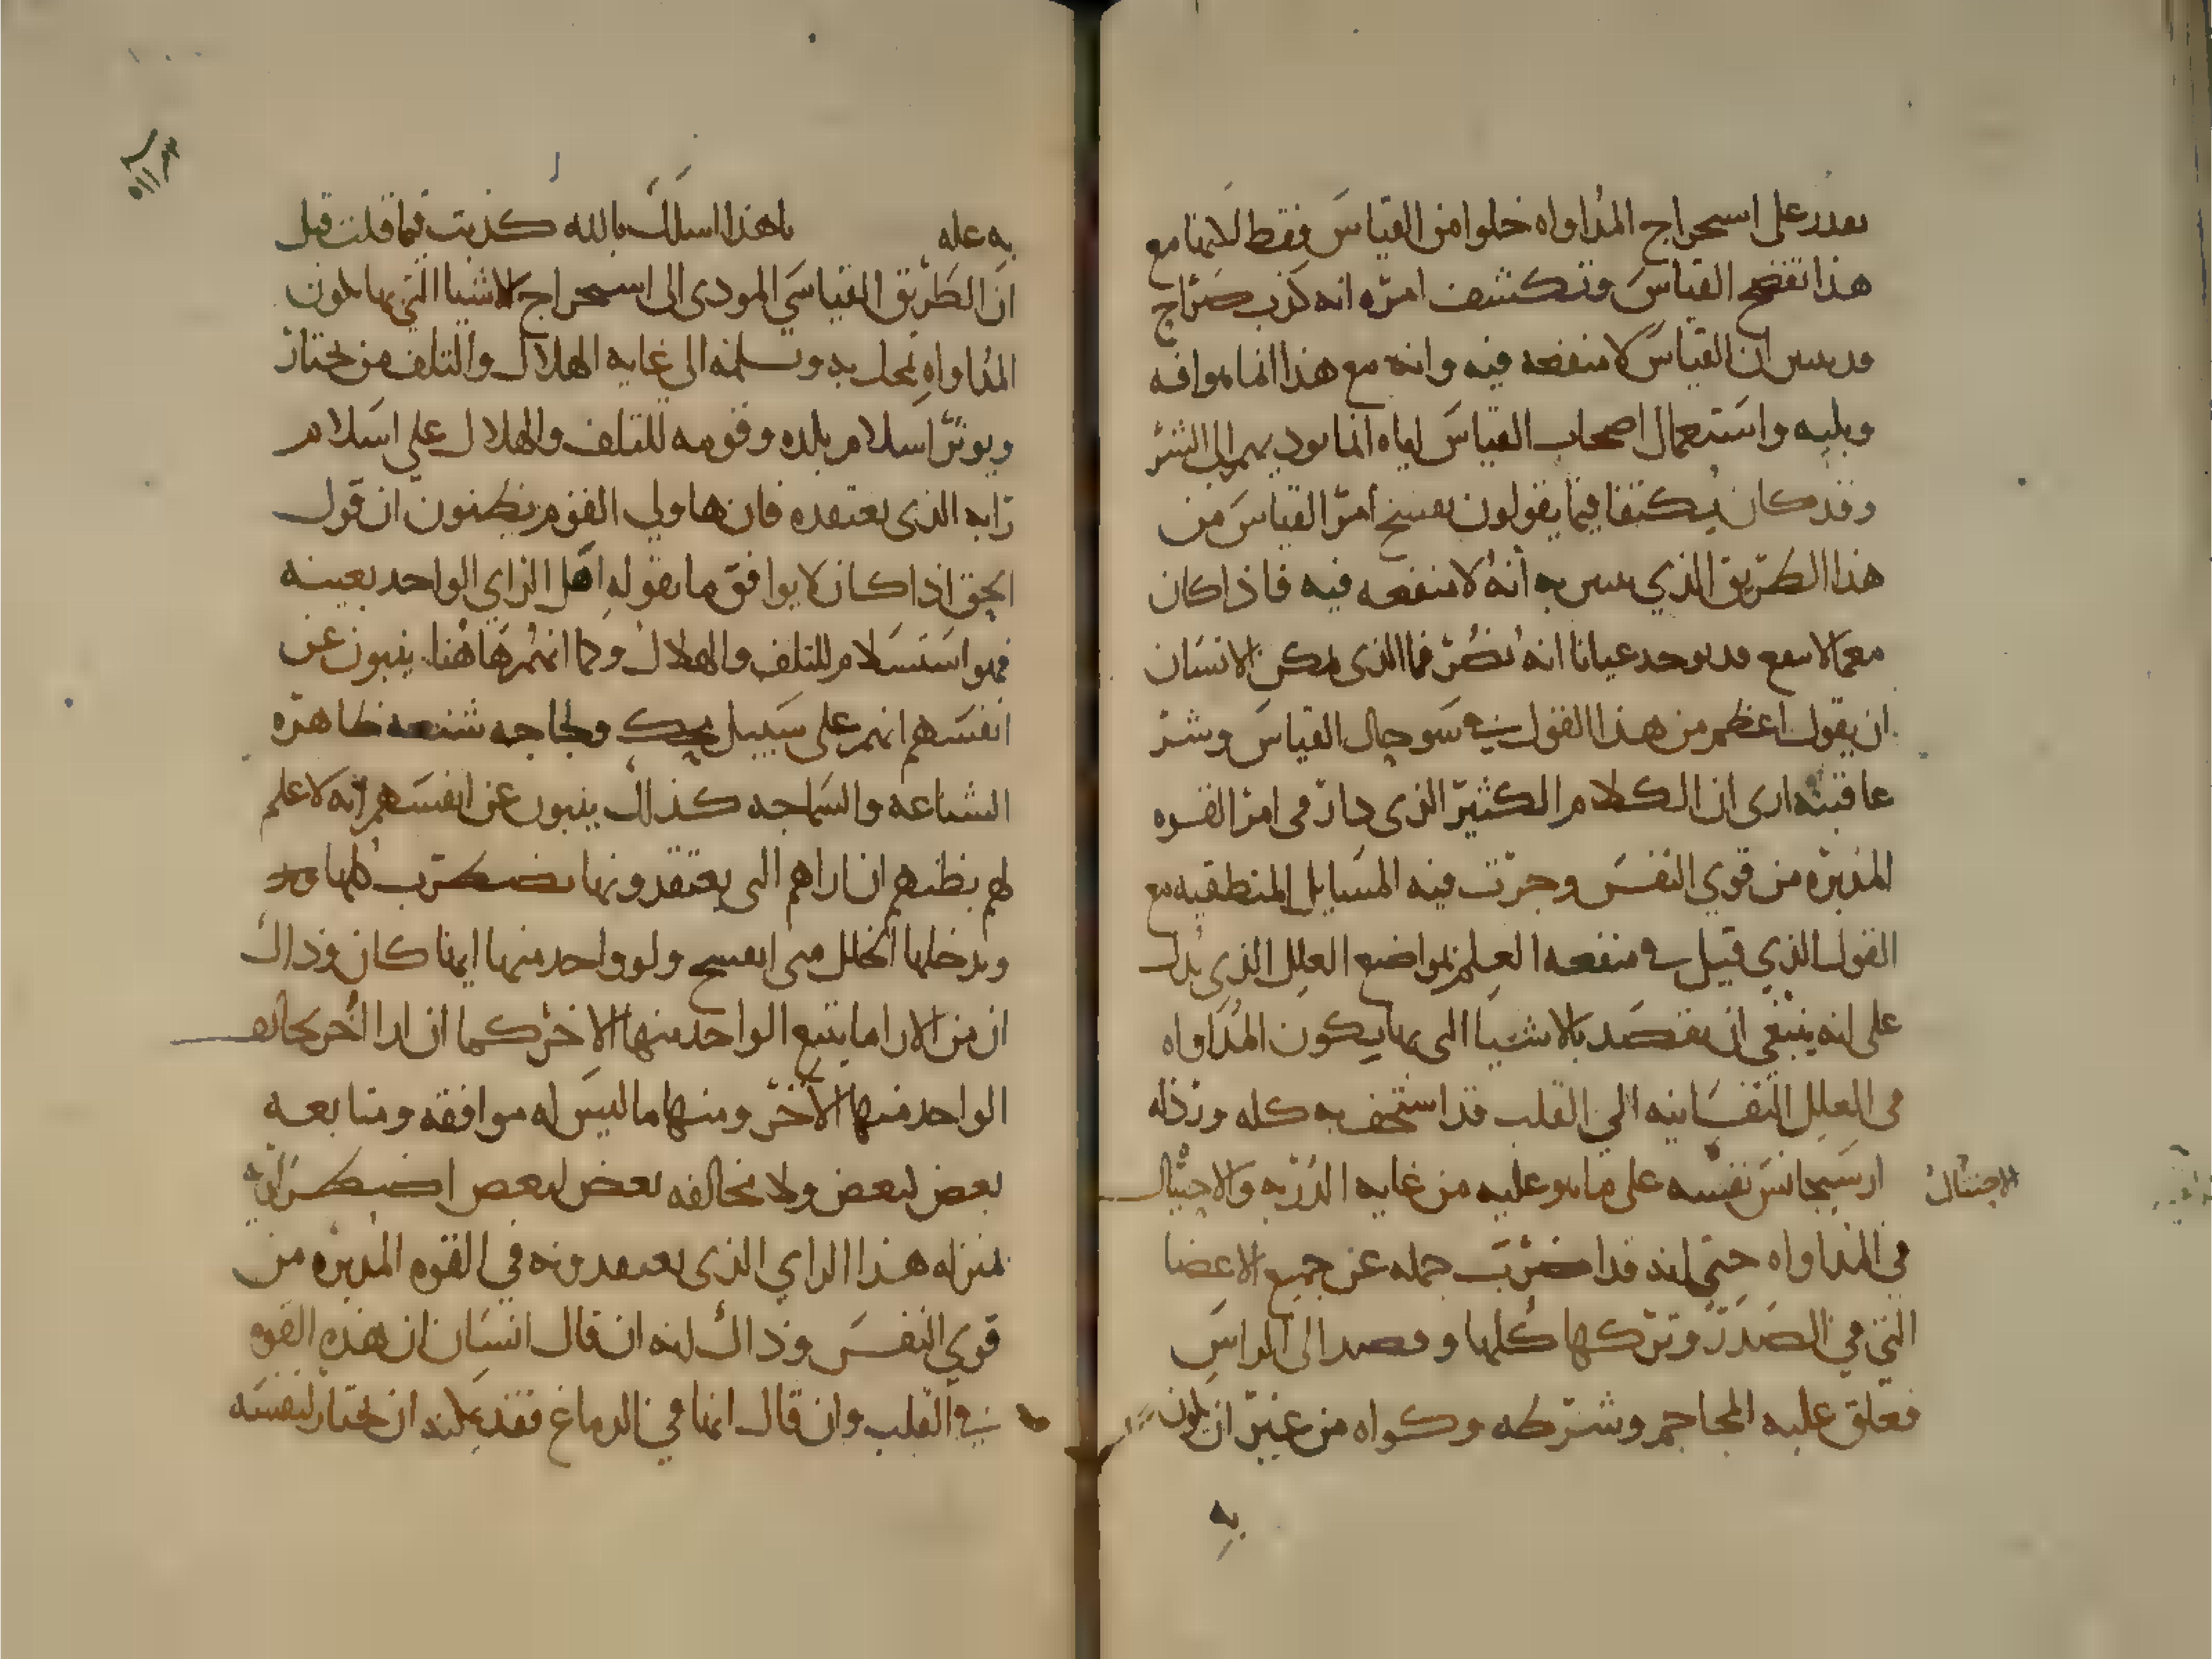 يقدر على استخراج المداواه خلوا من القياس فقط لانها مع
هذا تفضح القياس وتكشف امره انه كذب صراح
قد تبين ان القياس لا منفعه فيه وانه مع هذا انما موافه
وبليه واستعمال اصحاب القياس اياه انما يوديهم الى الشر
وقد كان يكتفا فيما يقولون بفسخ امر القياس من
هذا الطريق الذي تبين به أنه لا منفعه فيه فاذا كان
معما لا ينفع قد يوجد عيانا انه يضر فما الذى يمكن الانسان
ان يقول اعظم من هذا القول في سو حال القياس وشر
عاقبته ارى ان الكلام الكثير الذى دار في امر القوه
المدبره من قوي النفس وجرت فيه المسايل المنطقيه مع
القول الذي قيل في منفعه العلم بمواضع العلل الذي يدل
على انه ينبغي ان يقصد بالاشيا التى بها يكون المداواه
في العلل النفسانيه الي القلب قد استخف به كله ورذله
ارسيجانس نفسه على ما هو عليه من غايه الدربه والاحتيال
الاحتيال
في المداواه حتي انه قد اضرب جمله عن جميع الاعضا
التي في الصدر وتركها كلها وقصد الى الراس
فعلق عليه المحاجم وشرطه وكواه من غير ان يكون
به
به عله يا هذا اسلك بالله كذبت فما قلت قبل
ان الطريق القياسي المودى الى استخراج الاشيا التي بها يكون
المداواه يحل به وتسلمه الى غايه الهلاك والتلف من يختار
ويوثر اسلام بلده وقومه للتلف والهلاك على اسلام
رايه الذى يعتقده فان هاولي القوم يظنون ان قول
الحق اذا كان لا يوافق ما يقوله اهل الراي الواحد بعينه
فهو استسلام للتلف والهلاك وكما انهم هاهنا ينبون عن
انفسهم انهم على سبيل محك ولجاجه شنعه ظاهره
الشناعه والسماجه كذلك ينبون عن انفسهم انه لا علم
لهم بظنهم ان اراهم التى يعتقدونها تضطرب كلها
ويدخلها الخلل متى انفسخ ولو واحد منها ايها كان وذاك
ان من الارا ما يتبع الواحد منها الاخر كما ان ارا أخر يخالف
الواحد منها الاخر ومنها ما ليس له موافقه ومتابعه
بعض لبعض ولا مخالفه بعض لبعض اضطراريه
بمنزله هذا الراي الذى يعتقدونه في القوه المدبره من
قوي النفس وذاك انه ان قال انسان ان هذه القوه
في القلب وان قال انها في الدماغ فقد يمكنه ان يختار لنفسه